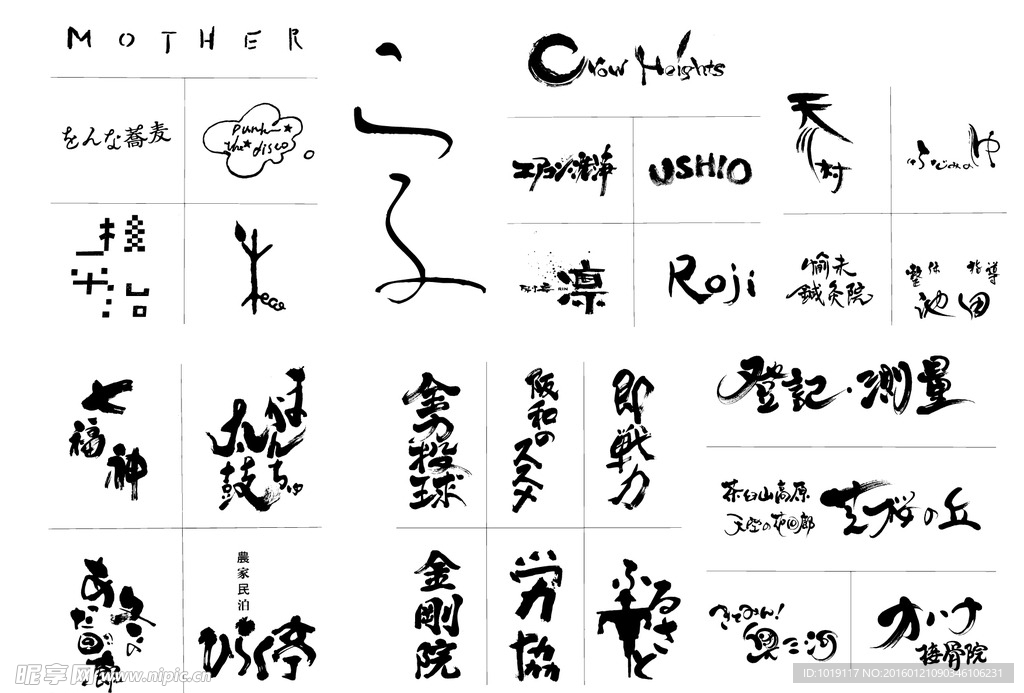 MOTHER
をんな蕎麦
Punk
the disco
eco
Crow Heights
エアコン洗海
USHIO
凛
Roji
天村
ふじみのゆ
愉未
鍼灸院
整体 指導
池田
七福神
ほんちゅ
太鼓
全力投球
阪和のススメ
即戦力
登記・測量
茶臼山高原
天空の花回廊
芝桜の丘
農家民泊
ひらく亭
金剛院
労協
ふるさと
きてみん!
奥三河
オハナ
接骨院
昵享网 www.nipic.cn
ID:1019117 NO:20160121090346106231